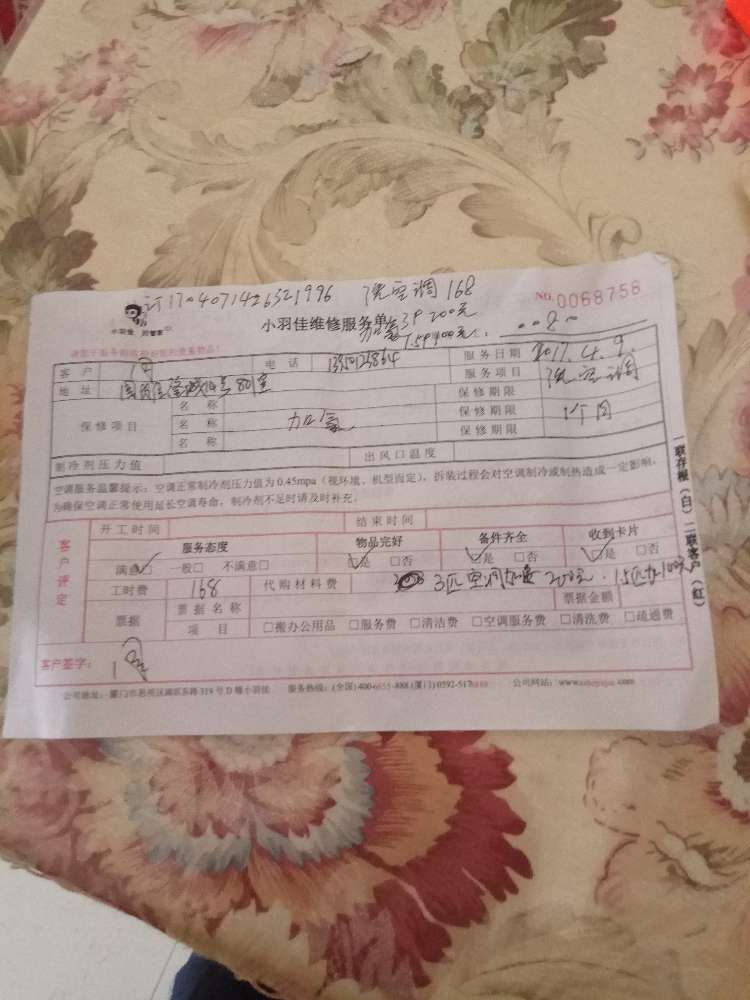 订1704071426321996 洗空调168
小羽佳 好管家
小羽佳维修服务单
加氟3P 200元
1.5P 100元
NO. 0068758
客户
电话
服务日期 2017.4.9.
地址
服务项目 洗空调
保修项目
名称
保修期限
名称 加氟
保修期限 1个月
名称
保修期限
制冷剂压力值
出风口温度
空调服务温馨提示：空调正常制冷剂压力值为0.45mpa（视环境、机型而定），拆装过程会对空调制冷或制热造成一定影响，
为确保空调正常使用延长空调寿命，制冷剂不足时请及时补充。
客户评定
开工时间
结束时间
服务态度
物品完好
备件齐全
收到卡片
满意□ 一般□ 不满意□
□是 □否
□是 □否
□是 □否
工时费 168
代购材料费 3匹空调加 200元.1.5匹加100元
票据
票据名称
票据金额
项目 □搬办公用品 □服务费 □清洁费 □空调服务费 □清洗费 □疏通费
客户签字：
公司地址：厦门市思明区湖滨东路319号D幢小羽佳 服务热线：(全国)400-6655-888 公司网站：
一联存根（白）二联客户（红）